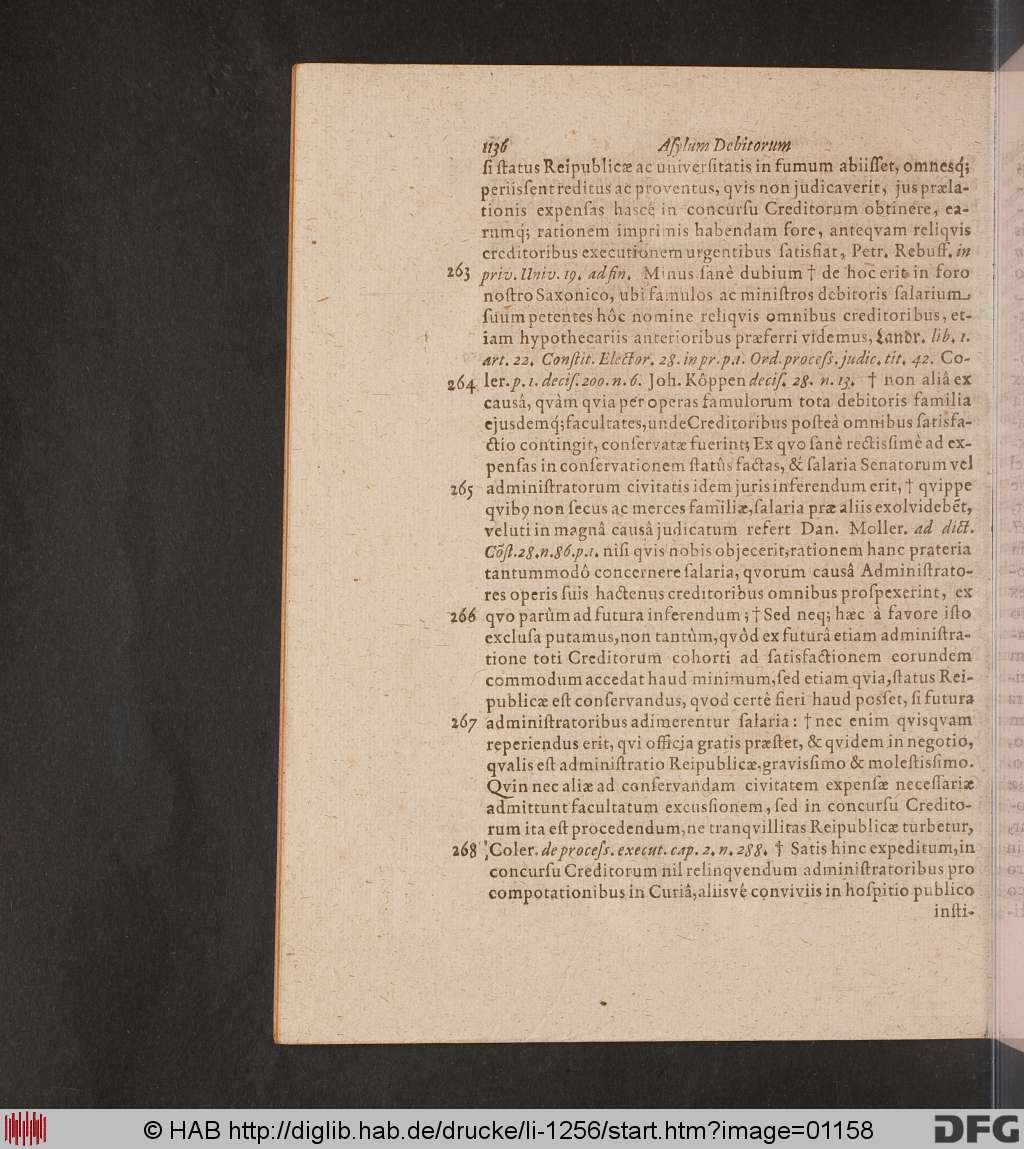 1136 Aſylum Debitorum
ſi ſtatus Reipublicæ ac univerſitatis in fumum abiiſſet, omnesq́;
periisſent reditus ac proventus, qvis non judicaverit, jus præla-
tionis expenſas hasce in concurſu Creditorum obtinere, ea-
rumq́; rationem imprimis habendam fore, anteqvam reliqvis
creditoribus executionem urgentibus ſatisfiat, Petr. Rebuff. in
263 priv. Univ. 19. ad fin. Minus ſanè dubium † de hoc erit in foro
noſtro Saxonico, ubi famulos ac miniſtros debitoris ſalarium
ſuum petentes hôc nomine reliqvis omnibus creditoribus, et-
iam hypothecariis anterioribus præferri videmus, Landr. lib. 1.
art. 22. Conſtit. Elector. 28. in pr. p. 1. Ord. proceſs. judic. tit. 42. Co-
264 ler. p. 1. deciſ. 200. n. 6. Joh. Kôppen deciſ. 28. n. 13. † non aliâ ex
causâ, qvàm qvia per operas famulorum tota debitoris familia
ejusdemq́; facultates, unde Creditoribus poſteà omnibus ſatisfa-
ctio contingit, conſervatæ fuerint; Ex qvo ſanè rectisſimè ad ex-
penſas in conſervationem ſtatûs factas, & ſalaria Senatorum vel
265 adminiſtratorum civitatis idem juris inferendum erit, † qvippe
qvibꝯ non ſecus ac merces familiæ, ſalaria præ aliis exolvidebēt,
veluti in magnâ causâ judicatum refert Dan. Moller. ad dict.
Cōſt. 28. n. 86. p. 1. niſi qvis nobis objecerit, rationem hanc prateria
tantummodô concernere ſalaria, qvorum causâ Adminiſtrato-
res operis ſuis hactenus creditoribus omnibus proſpexerint, ex
266 qvo parùm ad futura inferendum; † Sed neq; hæc à favore iſto
excluſa putamus, non tantùm, qvòd ex futurâ etiam adminiſtra-
tione toti Creditorum cohorti ad ſatisfactionem eorundem
commodum accedat haud minimum, ſed etiam qvia, ſtatus Rei-
publicæ eſt conſervandus, qvod certè fieri haud posſet, ſi futura
267 adminiſtratoribus adimerentur ſalaria: † nec enim qvisqvam
reperiendus erit, qvi officia gratis præſtet, & qvidem in negotio,
qvalis eſt adminiſtratio Reipublicæ, gravisſimo & moleſtisſimo.
Qvin nec aliæ ad conſervandam civitatem expenſæ neceſſariæ
admittunt facultatum excusſionem, ſed in concurſu Credito-
rum ita eſt procedendum, ne tranqvillitas Reipublicæ turbetur,
268 Coler. de proceſs. execut. cap. 2. n. 288. † Satis hinc expeditum, in
concurſu Creditorum nil relinqvendum adminiſtratoribus pro
compotationibus in Curiâ, aliisvé conviviis in hoſpitio publico
inſti-
© HAB http://diglib.hab.de/drucke/li-1256/start.htm?image=01158
DFG